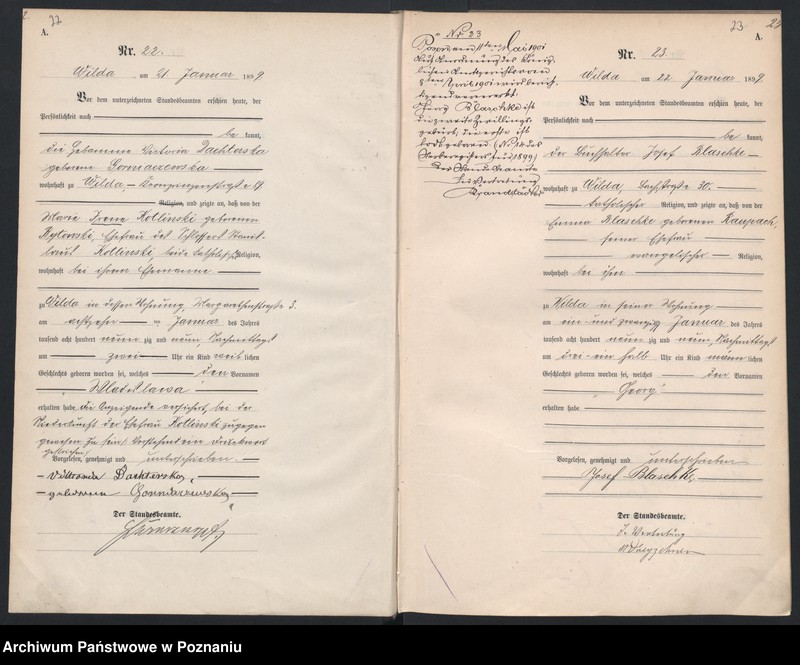 22
A.
Nr. 22.
Wilda am 21. Januar 1899
Vor dem unterzeichneten Standesbeamten erschien heute, der
Persönlichkeit nach
be kannt,
die Hebamme Victoria Dachterska
geborene Gorniaczewska
wohnhaft zu Wilda, Kronprinzenstraße
Religion, und zeigte an, daß von der
Maria Irene Kotlinski geborenen
Rytowski, Ehefrau des Schlossers Stanis-
laus Kotlinski, beide katholisch Religion,
wohnhaft bei ihrem Ehemanne
zu Wilda in dessen Wohnung, Margarethenstraße 3.
am achtzehn ten Januar des Jahres
tausend acht hundert neun zig und neun, Nachmittags
um zwei Uhr ein Kind weib lichen
Geschlechts geboren worden sei, welches den Vornamen
Wladislawa
erhalten habe, die Anzeigende versichert, bei der
Niederkunft der Ehefrau Kotlinski zugegen
gewesen zu sein. Vorstehend ein Druckwort
gestrichen.
Vorgelesen, genehmigt und unterschrieben.
Viktoria Dachterska,
geborene Gorniaczewska
Der Standesbeamte.
23
24
A.
Nr. 23
Posen am 11ten Mai 1901
Auf Anordnung des König-
lichen Amtsgerichts vom
April 1901 wird berich-
tigend vermerkt:
Georg Blaschke ist
die zweite Zwillings-
geburt, die erste ist
todtgeboren (Nr. des
Sterberegisters für 1899)
Der Standesbeamte
In Vertretung
Brandstädter
Nr. 23.
Wilda am 22. Januar 1899
Vor dem unterzeichneten Standesbeamten erschien heute, der
Persönlichkeit nach
be kannt,
der Buchhalter Josef Blaschke
wohnhaft zu Wilda, Bachstraße 30.
katholischer Religion, und zeigte an, daß von der
Emma Blaschke geborenen Raupach,
seiner Ehefrau
evangelischer Religion,
wohnhaft bei ihm
zu Wilda in seiner Wohnung
am ein und zwanzigsten Januar des Jahres
tausend acht hundert neun zig und neun, Nachmittags
um drei ein halb Uhr ein Kind männ lichen
Geschlechts geboren worden sei, welches den Vornamen
Georg
erhalten habe
Vorgelesen, genehmigt und unterschrieben
Josef Blaschke
Der Standesbeamte.
In Vertretung
Archiwum Państwowe w Poznaniu